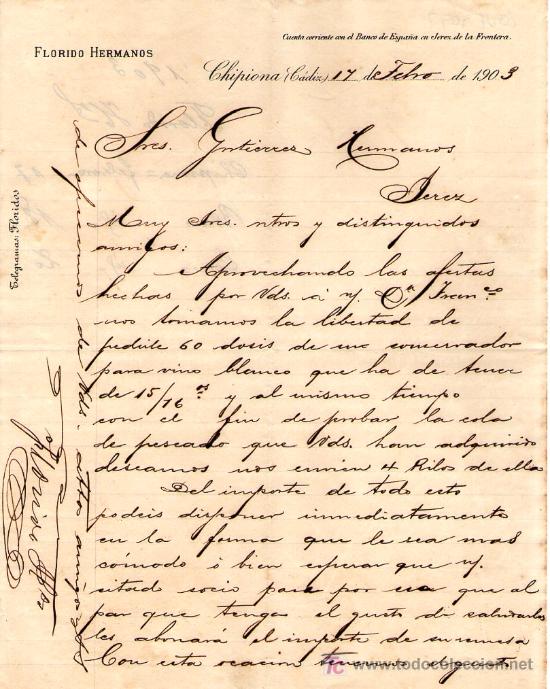 Cuenta corriente con el Banco de España en Jerez de la Frontera.
FLORIDO HERMANOS
Chipiona (Cádiz) 17 de Febro de 1903
Sres. Gutierrez Hermanos
Jerez
Muy Sres. ntros y distinguidos
amigos:
Aprovechando las ofertas
hechas por Vds. á n/ Dn. Franco
nos tomamos la libertad de
pedirle 60 dosis de un conservador
para vino blanco que ha de tener
de 15/16 os y al mismo tiempo
con el fin de probar la cola
de pescado que Vds. han adquirido
deseamos nos envien 4 Kilos de ella
Del importe de todo esto
podeis disponer inmediatamente
en la forma que le sea mas
cómodo ó bien esperar que n/
citado socio pase por esa que al
par que tenga el gusto de saludarles
les abonará el importe de su remesa
Con esta ocacion tenemos el gusto
de de Vds. atto amigos
Florido Hos
Telegramas: Floridos
todocoleccion
www.todocoleccion.net